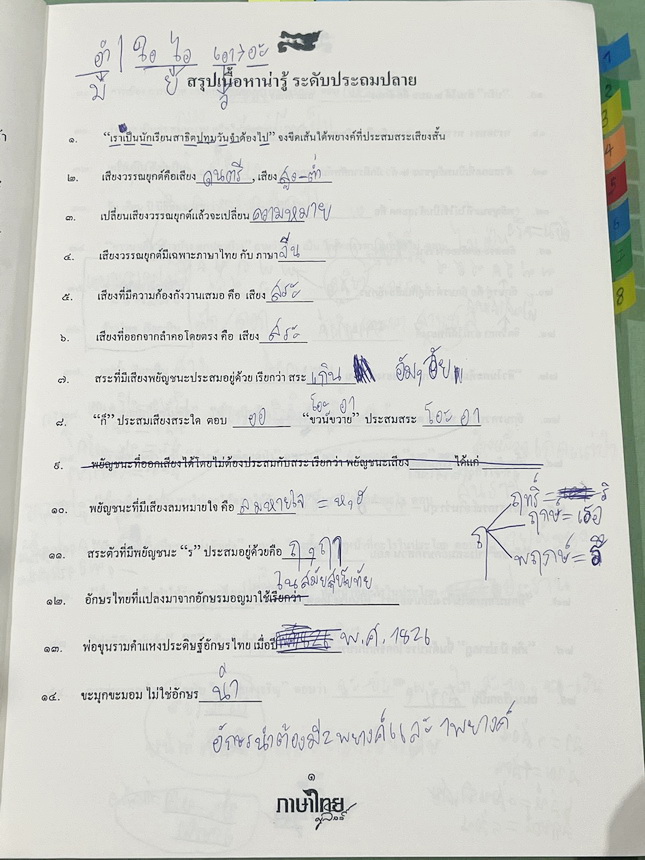 อำ | ใอ ไอ เอา>อะ
สรุปเนื้อหาน่ารู้ ระดับประถมปลาย
๑. "เราเป็นนักเรียนสาธิตปทุมวันจำต้องไป" จงขีดเส้นใต้พยางค์ที่ประสมสระเสียงสั้น
๒. เสียงวรรณยุกต์คือเสียง ดนตรี , เสียง สูง-ต่ำ
๓. เปลี่ยนเสียงวรรณยุกต์แล้วจะเปลี่ยน ความหมาย
๔. เสียงวรรณยุกต์มีเฉพาะภาษาไทย กับ ภาษา จีน
๕. เสียงที่มีความก้องกังวานเสมอ คือ เสียง สระ
๖. เสียงที่ออกจากลำคอโดยตรง คือ เสียง สระ
๗. สระที่มีเสียงพยัญชนะประสมอยู่ด้วย เรียกว่า สระ เกิน
โอะ อา
๘. "ก็" ประสมเสียงสระใด ตอบ ออ "ขวนขวาย" ประสมสระ โอะ อา
๙. พยัญชนะที่ออกเสียงได้โดยไม่ต้องประสมกับสระเรียกว่า พยัญชนะเสียง ได้แก่
๑๐. พยัญชนะที่มีเสียงลมหายใจ คือ ลมหายใจ = ห,ฮ
ฤทธิ์ = ริ
ฤกษ์ = เรอ
ฤ
พฤกษ์ = รึ
๑๑. สระตัวที่มีพยัญชนะ "ร" ประสมอยู่ด้วยคือ ฤ,ฤๅ
ในสมัยสุโขทัย
๑๒. อักษรไทยที่แปลงมาจากอักษรมอญมาใช้เรียกว่า
๑๓. พ่อขุนรามคำแหงประดิษฐ์อักษรไทย เมื่อปี พ.ศ. 1826
๑๔. ขะมุกขะมอม ไม่ใช่อักษร นำ
อักษรนำต้องมี 2 พยางค์ และ 1 พยางค์
๑
ภาษาไทย